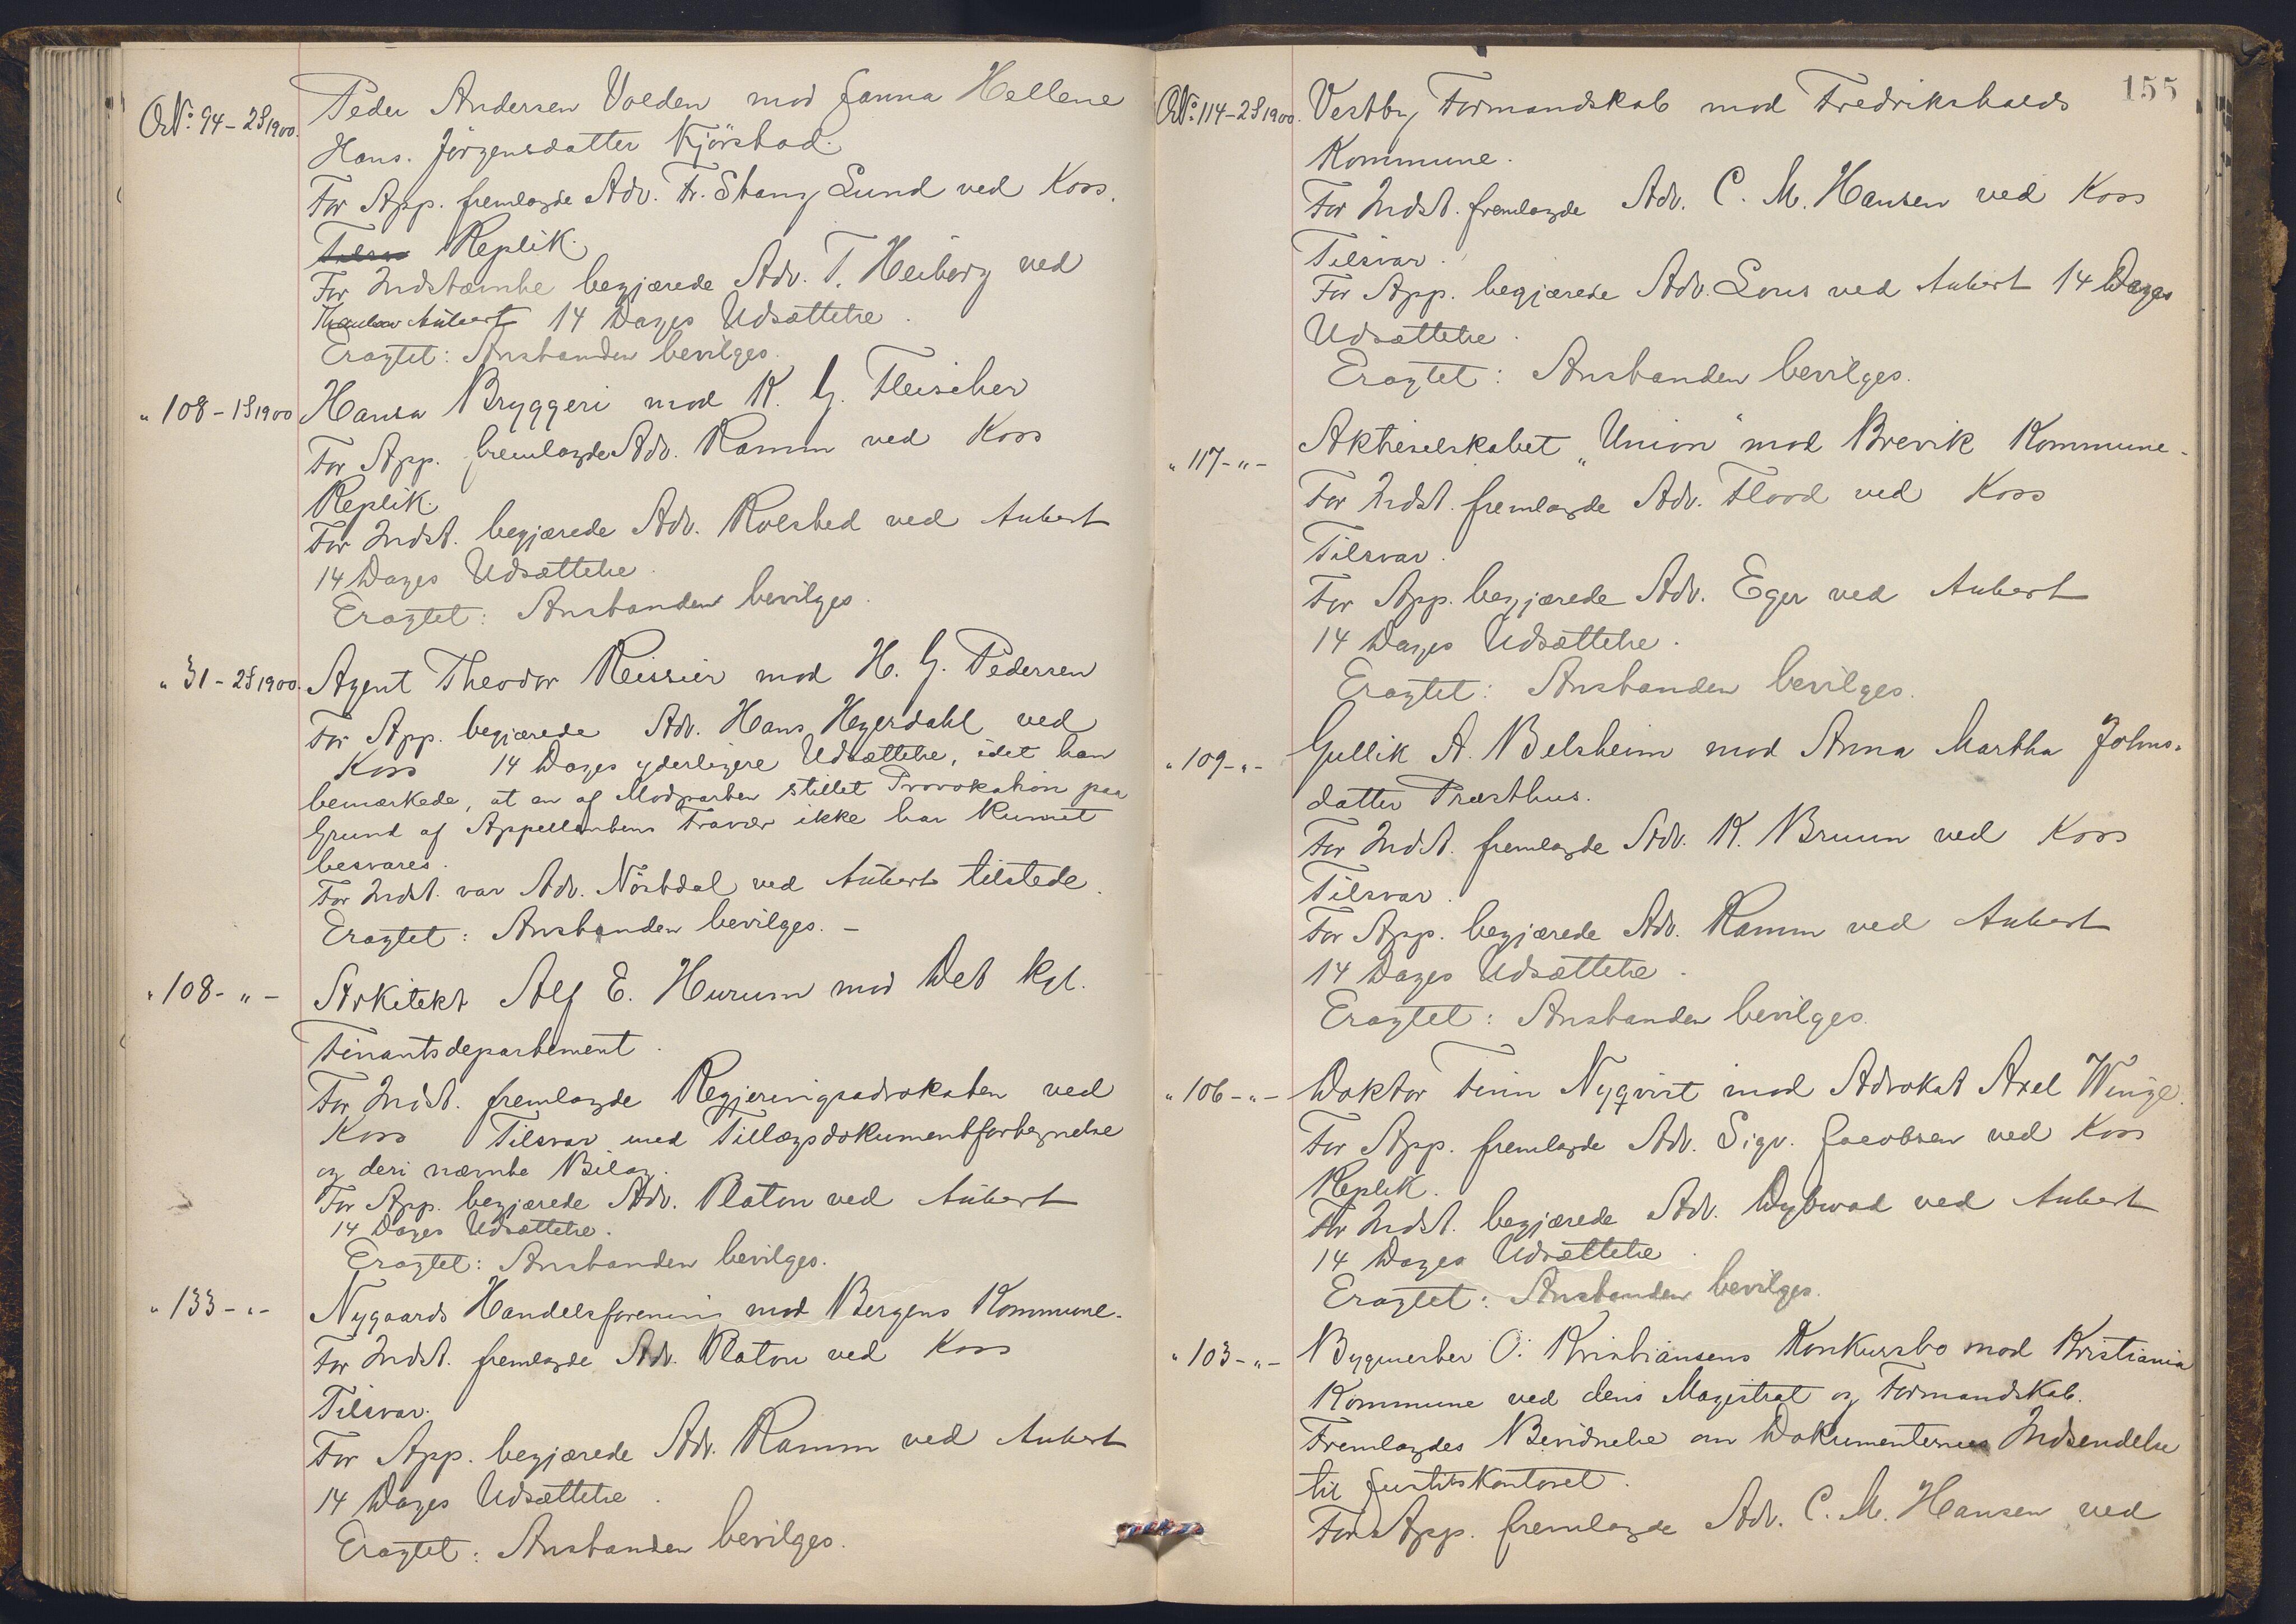 O.N.º 94 - 2S 1900. Peder Andersen Volden mod Janna Hellene
Hans. Jörgensdatter Kjörstad.
For App. fremlagde Adv. Fr. Stang Lund ved Koss.
Replik.
For Indstævnte begjærede Adv. T. Heiberg ved
Aubert 14 Dages Udsættelse.
Eragtet: Anstanden bevilges.
" 108 - 1S 1900 Hansa Bryggeri mod K. G. Fleischer
For App. fremlagde Adv. Ramm ved Koss
Replik.
For Indst. begjærede Adv. Rolsted ved Aubert
14 Dages Udsættelse.
Eragtet: Anstanden bevilges.
" 31 - 2S 1900. Agent Theodor Reissier mod H. G. Pedersen
For App. begjærede Adv. Hans Heyerdahl ved
Koss 14 Dages yderligere Udsættelse, idet han
bemærkede, at en af Modparten stillet Provokation paa
Grund af Appellantens Fravær ikke har kunnet
besvares.
For Indst. var Adv. Nöstdal ved Aubert tilstede.
Eragtet: Anstanden bevilges. -
" 108 - " - Arkitekt Alf E. Hurum mod Det kgl.
Finantsdepartement.
For Indst. fremlagde Regjeringsadvokaten ved
Koss Tilsvar med Tillægsdokumentfortegnelse
og deri nævnte Bilag.
For App. begjærede Adv. Platou ved Aubert
14 Dages Udsættelse.
Eragtet: Anstanden bevilges.
" 133 - " - Nygaards Handelsforening mod Bergens Kommune.
For Indst. fremlagde Adv. Platou ved Koss
Tilsvar.
For App. begjærede Adv. Ramm ved Aubert
14 Dages Udsættelse.
Eragtet: Anstanden bevilges.
155
O.N.º 114 - 2S 1900. Vestby Formandskab mod Fredrikshalds
Kommune.
For Indst. fremlagde Adv. C. M. Hansen ved Koss
Tilsvar.
For App. begjærede Adv. Lous ved Aubert 14 Dages
Udsættelse.
Eragtet: Anstanden bevilges.
" 117 - " - Aktieselskabet "Union" mod Brevik Kommune.
For Indst. fremlagde Adv. Flood ved Koss
Tilsvar.
For App. begjærede Adv. Eger ved Aubert
14 Dages Udsættelse.
Eragtet: Anstanden bevilges.
" 109 - " - Gullik A. Belsheim mod Anna Martha Johns.
datter Præsthus.
For Indst. fremlagde Adv. K. Bruun ved Koss
Tilsvar.
For App. begjærede Adv. Ramm ved Aubert
14 Dages Udsættelse.
Eragtet: Anstanden bevilges.
" 106 - " - Doktor Finn Nyqvist mod Advokat Axel Winge.
For App. fremlagde Adv. Sigv. Jacobsen ved Koss
Replik.
For Indst. begjærede Adv. Dybwad ved Aubert
14 Dages Udsættelse.
Eragtet: Anstanden bevilges.
" 103 - " - Bygmester O. Kristiansens Konkursbo mod Kristiania
Kommune ved dens Magistrat og Formandskab.
Fremlagdes Bevidnelse om Dokumenternes Indsendelse
til Justitskontoret.
For App. fremlagde Adv. C. M. Hansen ved